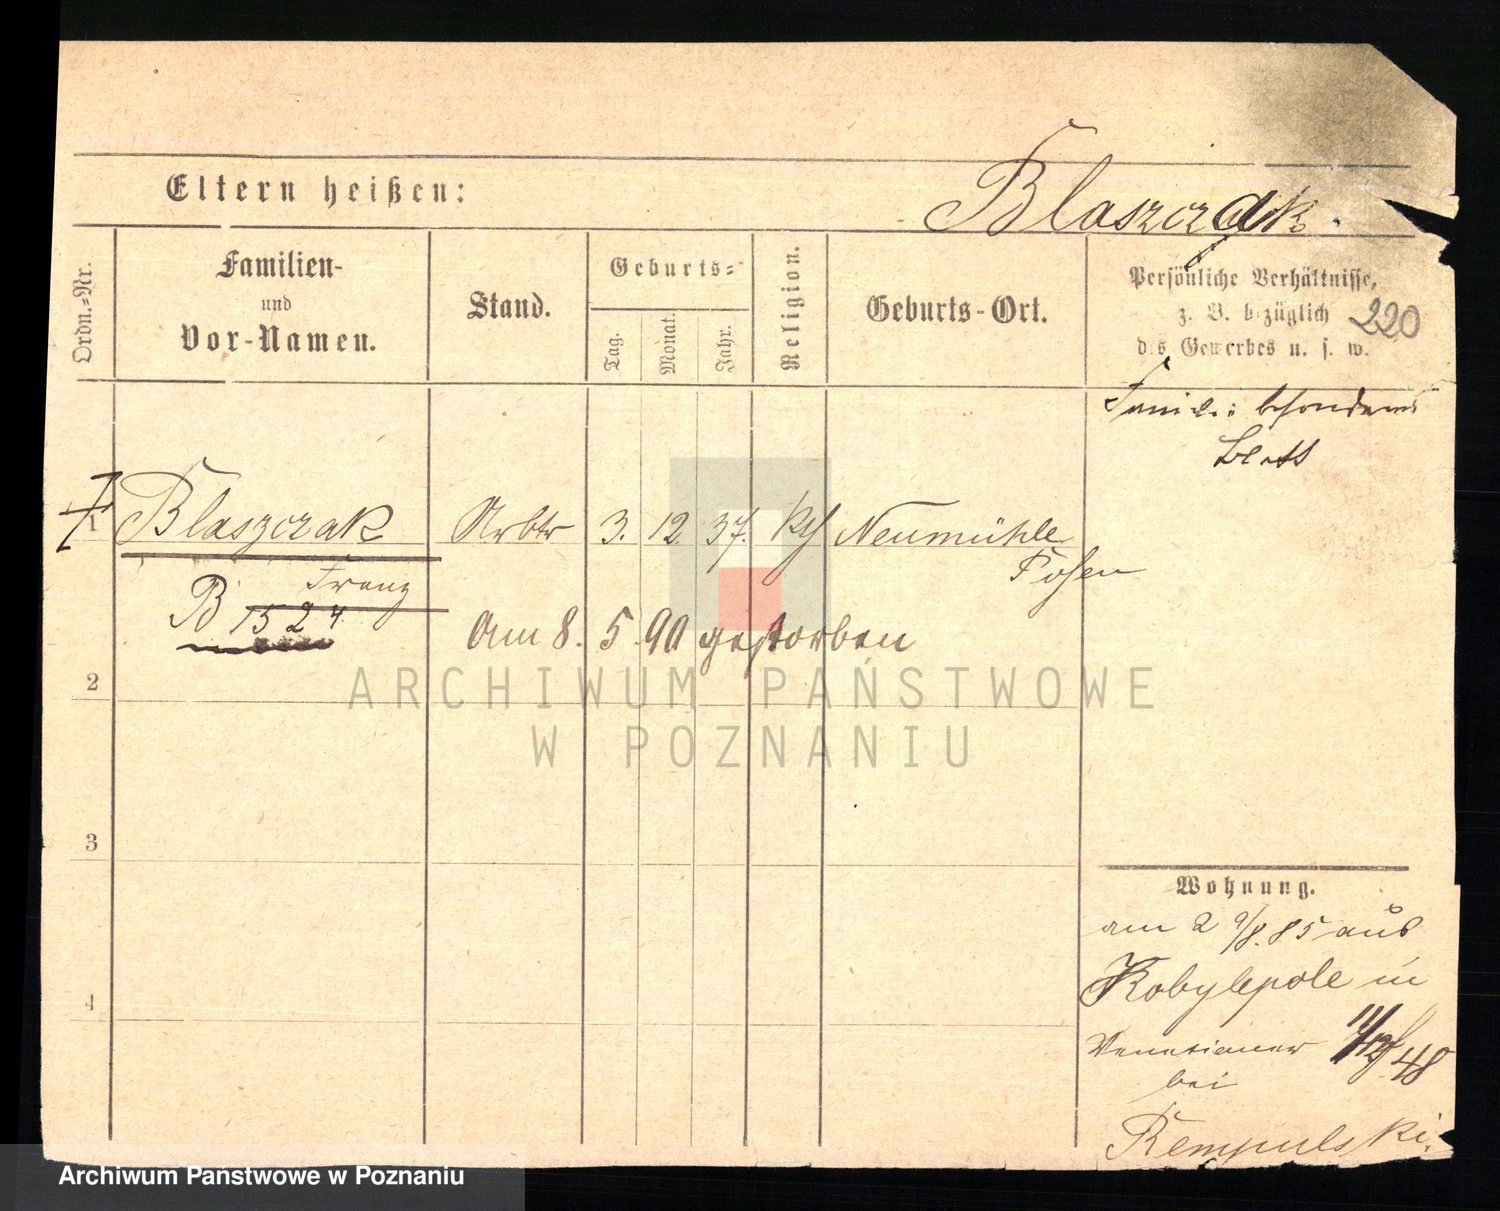 Eltern heißen:
Blaszczak.
Ordn.=Nr.
Familien-
und
Vor-Namen.
Stand.
Geburts=
Tag.
Monat.
Jahr.
Religion.
Geburts-Ort.
Persönliche Verhältnisse,
z. B. bezüglich
des Gewerbes u. s. w.
220
besonderes
Blatt
1 Blaszczak Arbtr 3. 12. 37. kth Neumühle
Franz
Posen
B 1524
Am 8. 5. 90 gestorben
2
3
4
Wohnung.
am 29/8. 85 aus
Kobylepole in
Venetianer 11/12/48
bei
Rempulski.
ARCHIWUM PAŃSTWOWE
W POZNANIU
Archiwum Państwowe w Poznaniu